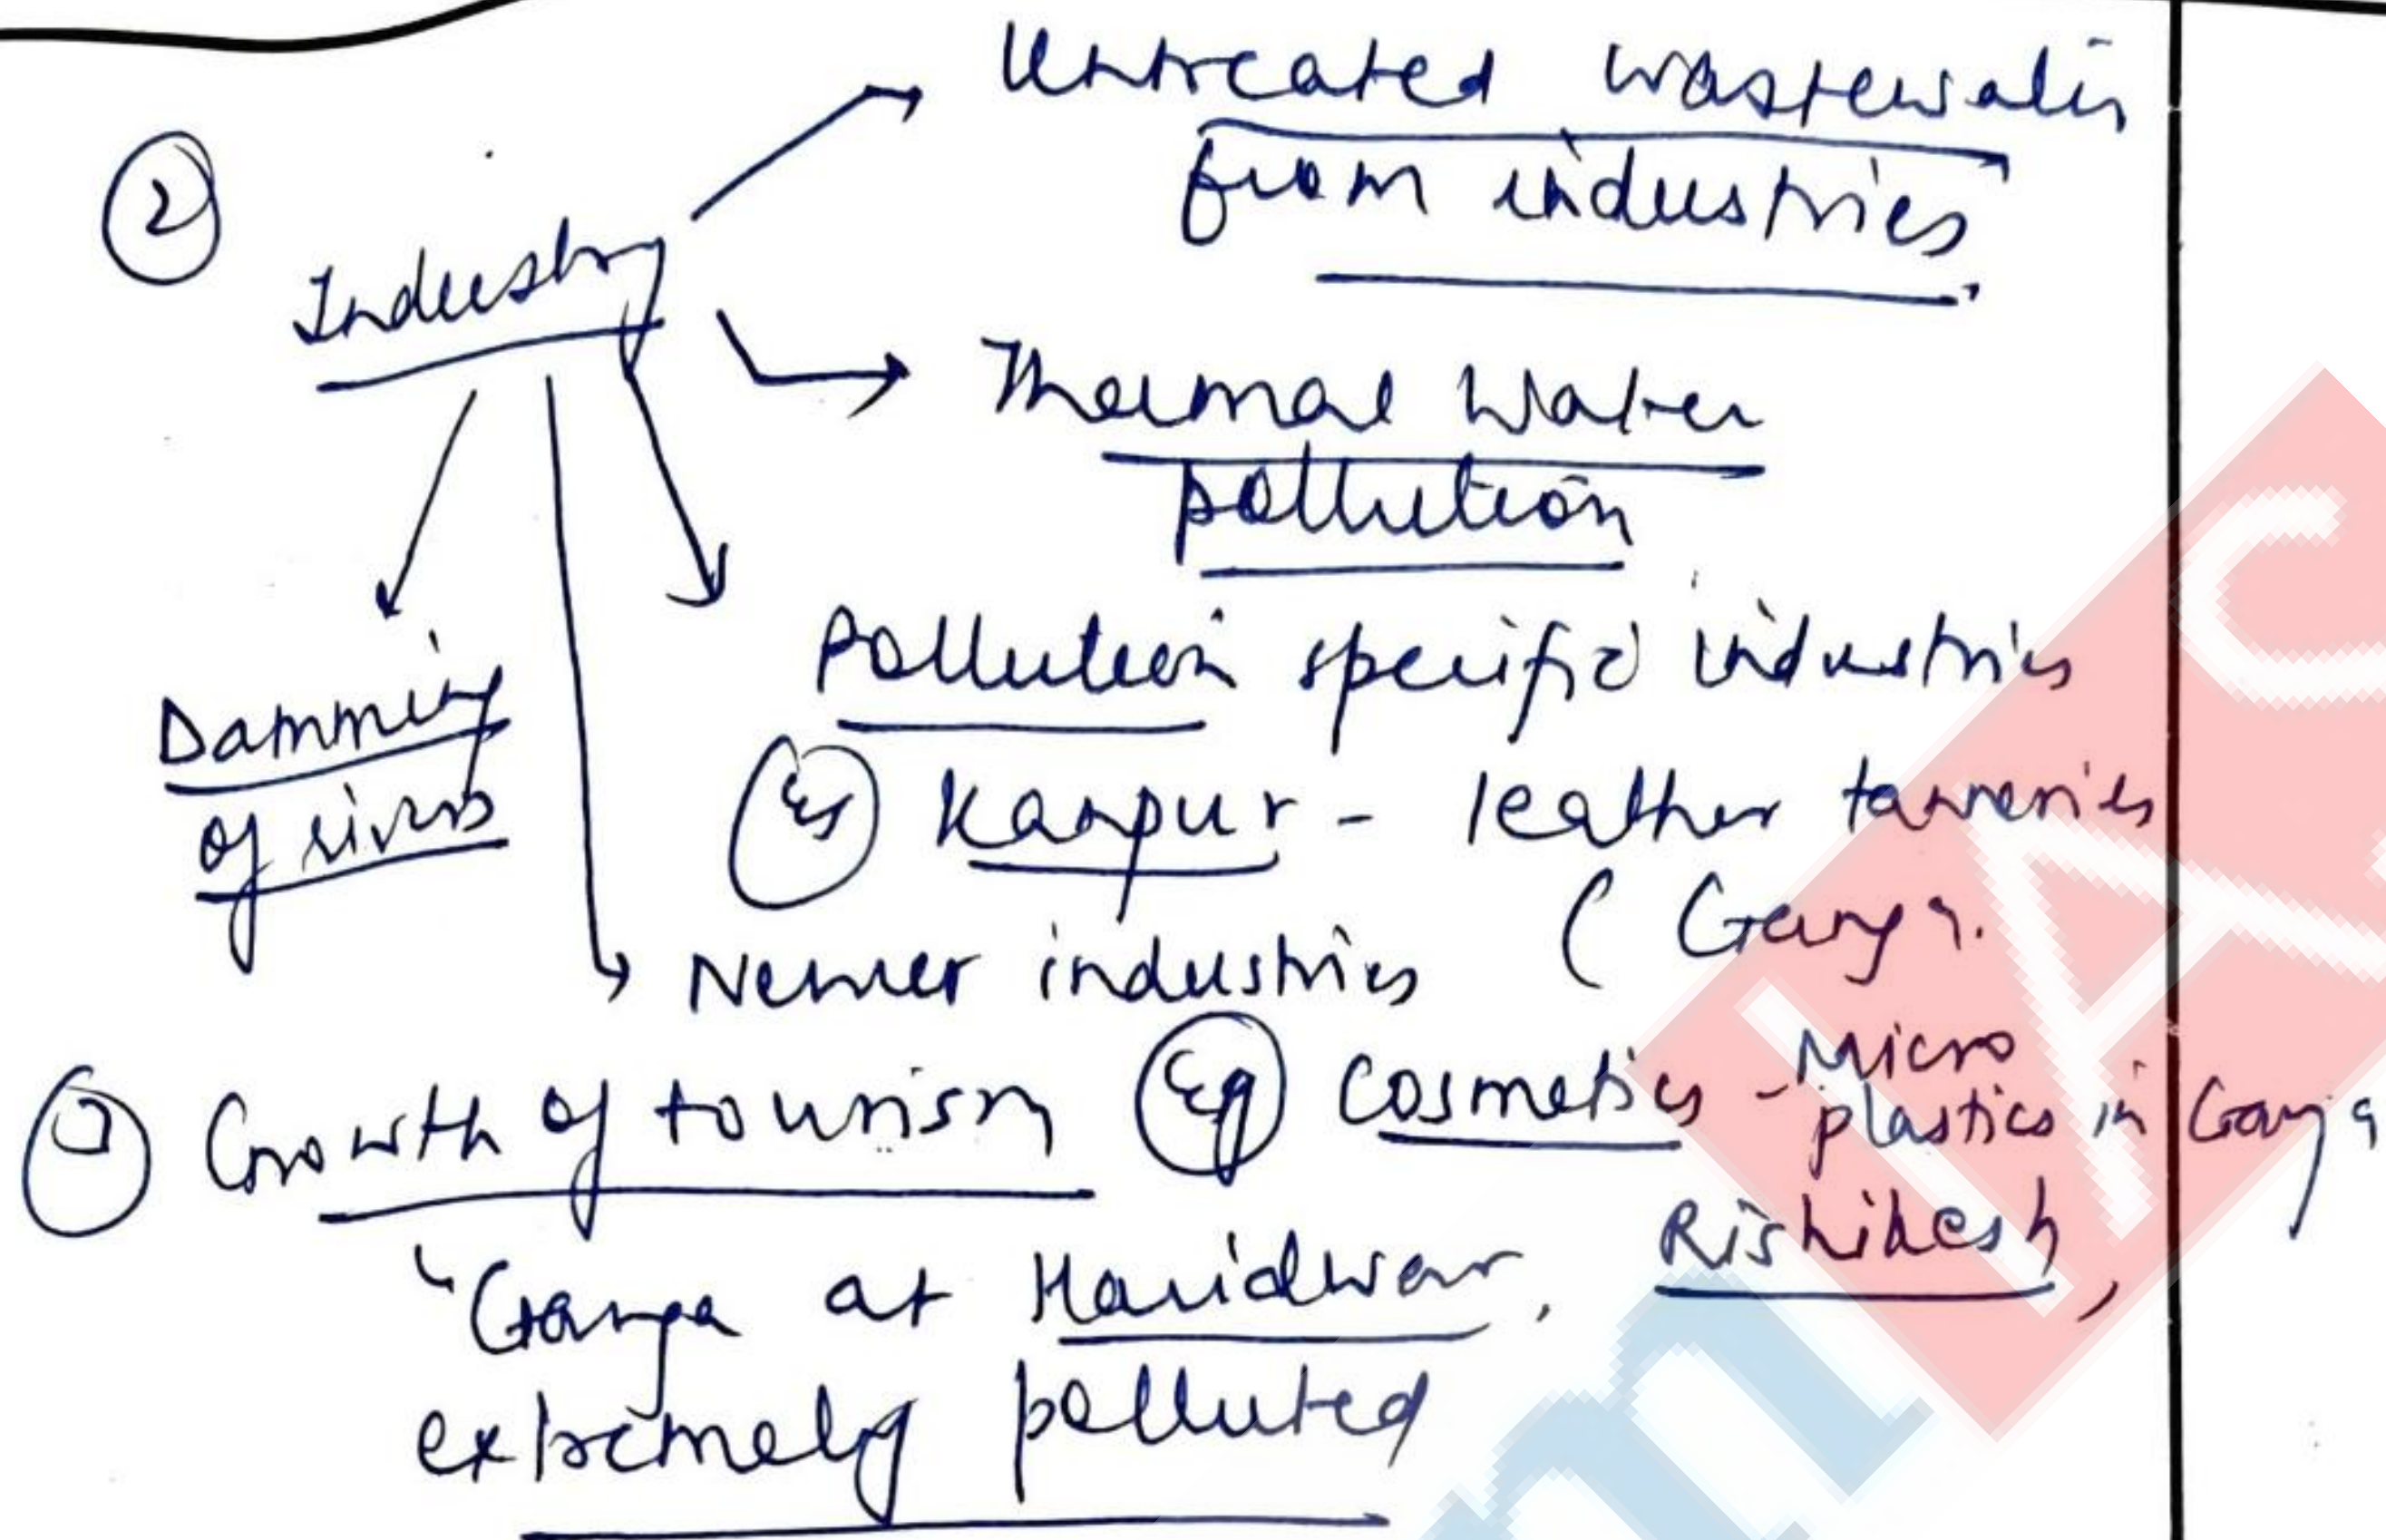 ②
Untreated wastewater
from industries
Industry
Thermal Water
pollution
Damming
of rivers
Pollution specific industries
Eg Kanpur - leather tanneries
(Ganga.
Newer industries
Eg Cosmetics - Micro
plastics in Ganga
③ Growth of tourism
Ganga at Haridwar, Rishikesh,
extremely polluted